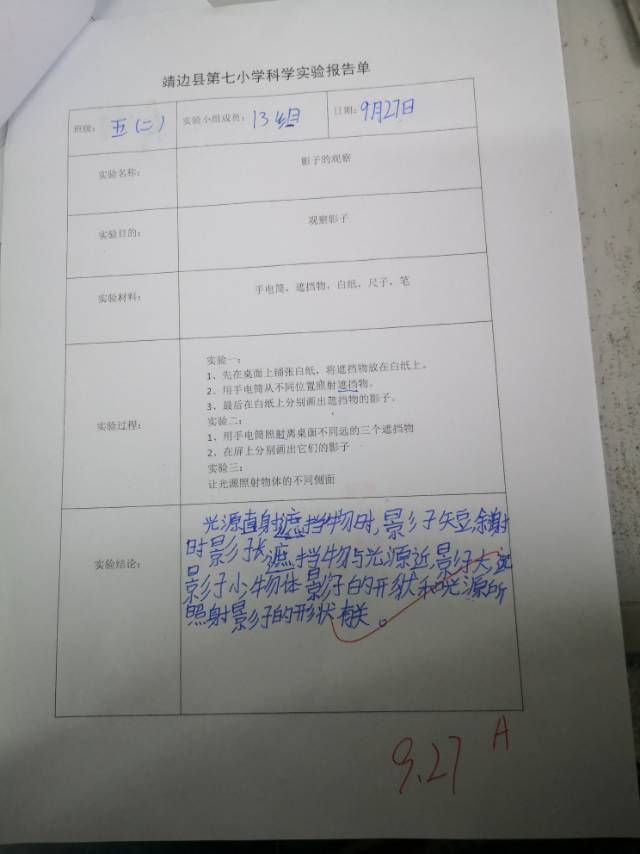 靖边县第七小学科学实验报告单
班级: 五(二) 实验小组成员: 13组 日期: 9月27日
实验名称: 影子的观察
实验目的: 观察影子
实验材料: 手电筒,遮挡物,白纸,尺子,笔
实验过程:
实验一:
1、先在桌面上铺张白纸,将遮挡物放在白纸上。
2、用手电筒从不同位置照射遮挡物。
3、最后在白纸上分别画出遮挡物的影子。
实验二:
1、用手电筒照射离桌面不同远的三个遮挡物
2、在屏上分别画出它们的影子
实验三:
让光源照射物体的不同侧面
实验结论:
光源直射遮挡物时,影子短,斜射
时影子长,遮挡物与光源近,影子大,远
影子小,物体影子的形状和光源所
照射影子的形状有关。
9.27 A